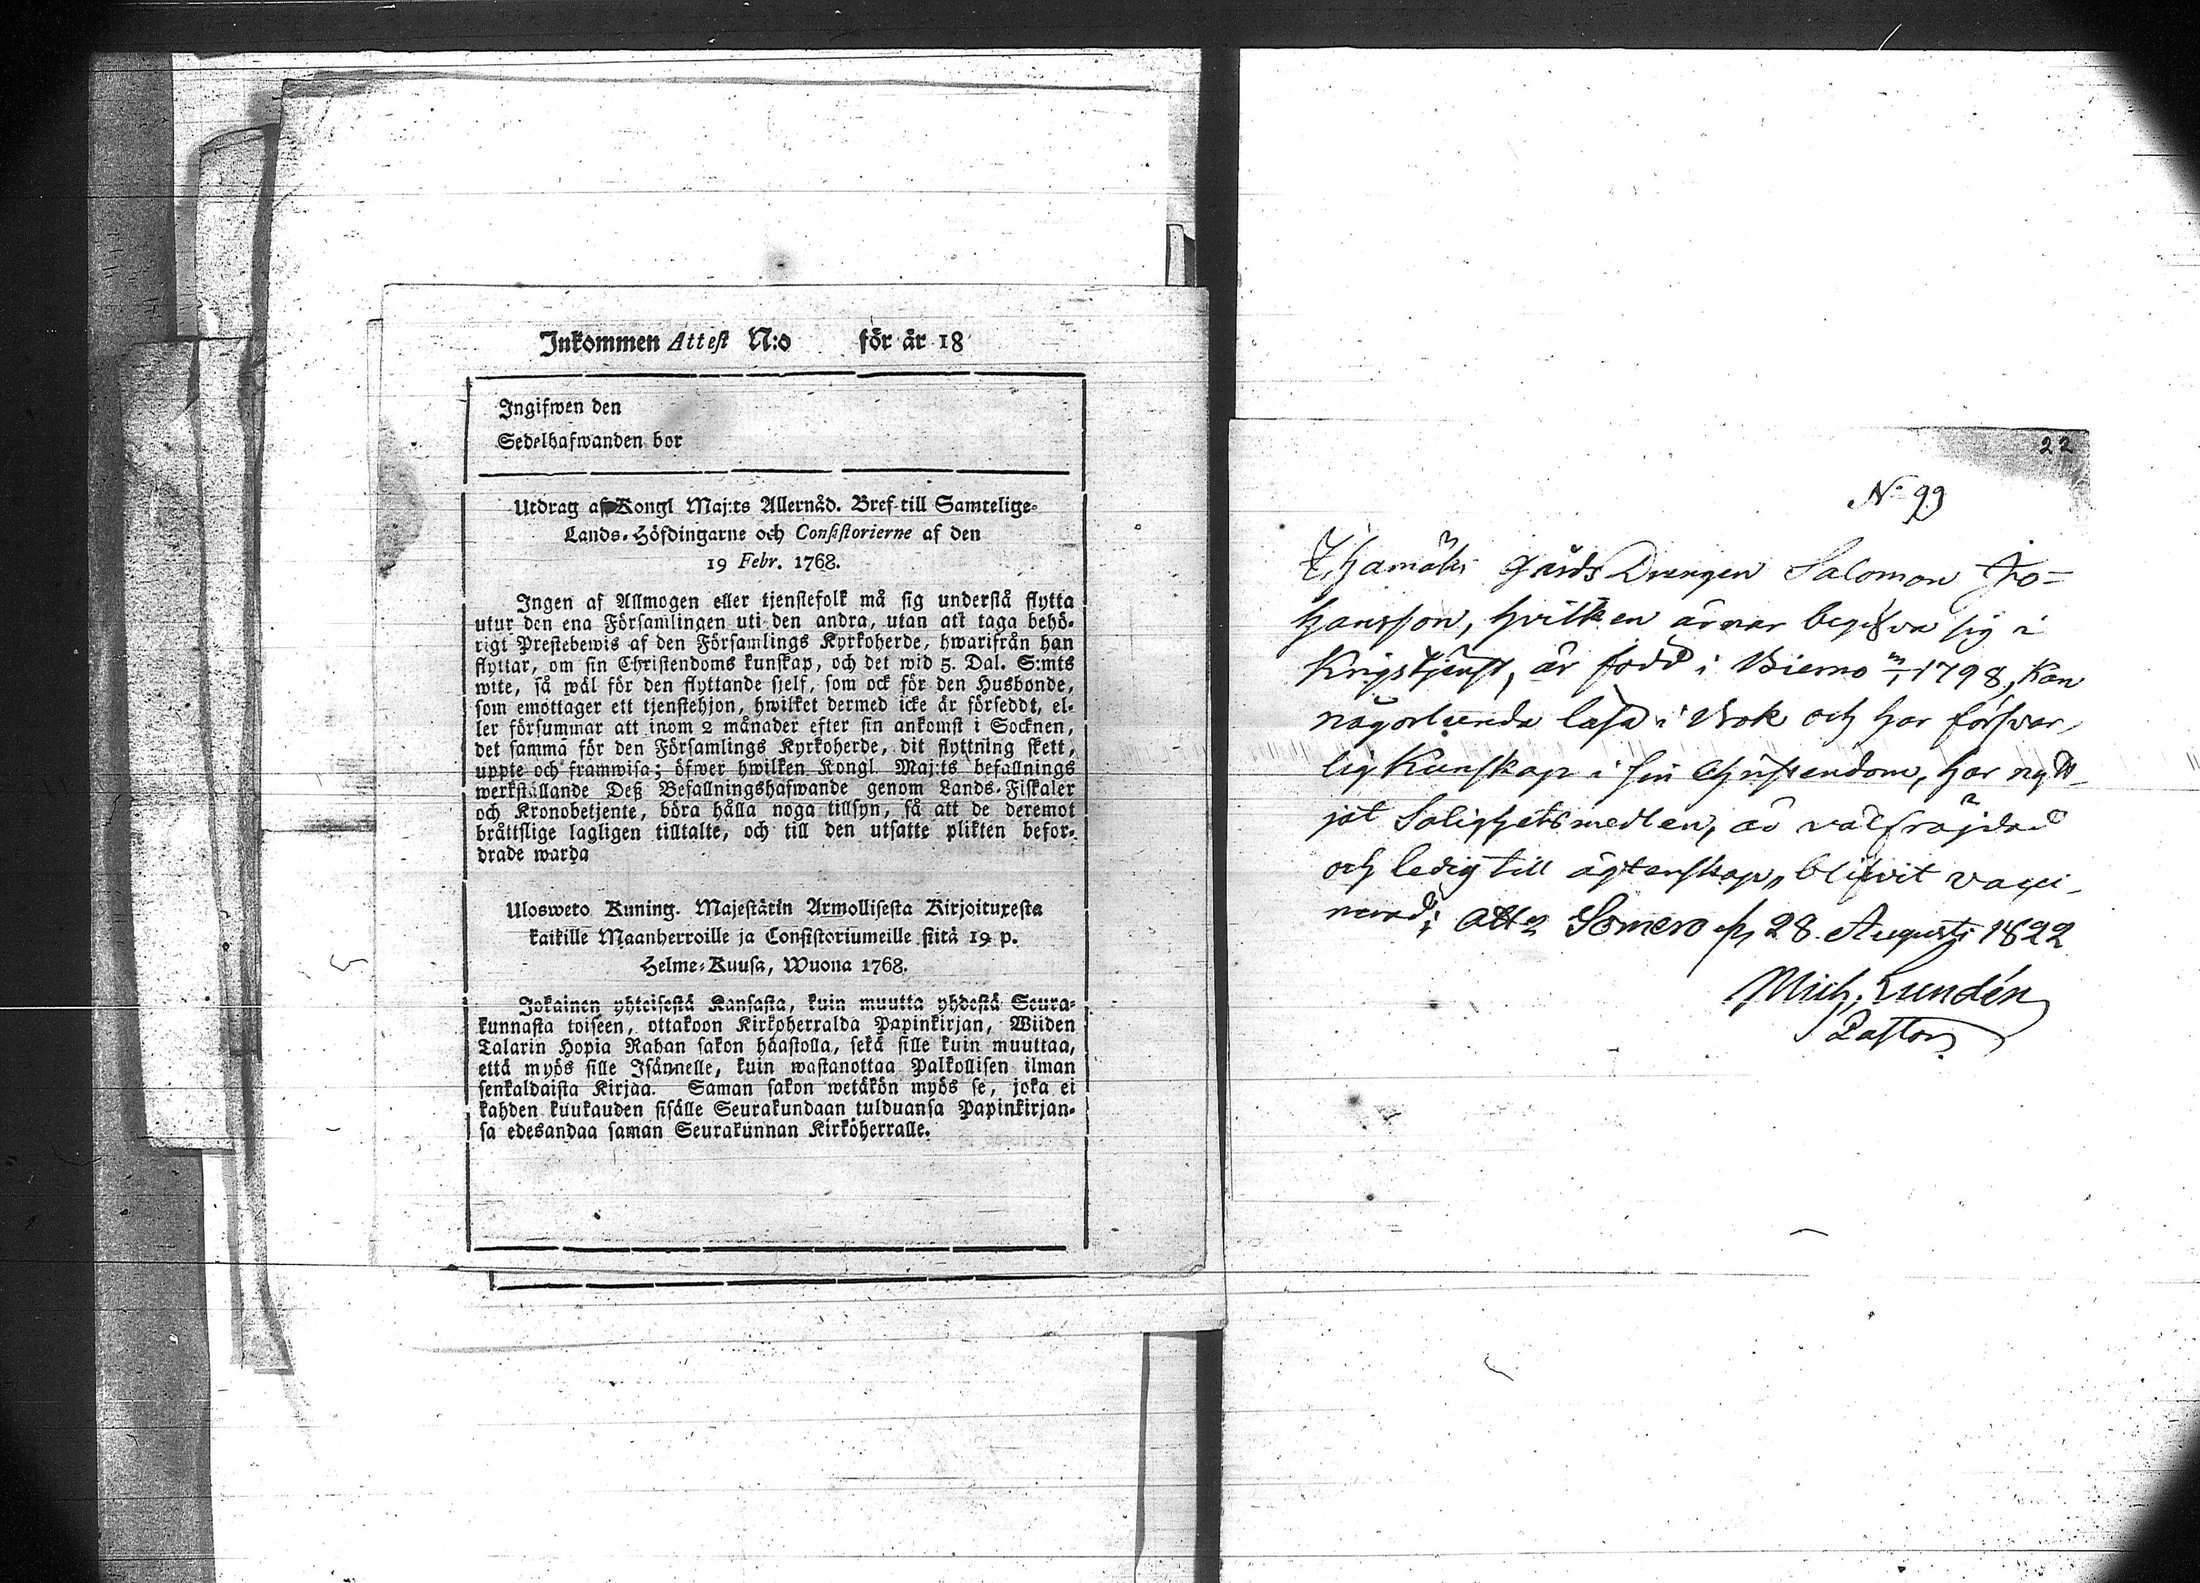 Inkommen Attest N:o för år 18
Ingifwen den
Sedelhafwanden bor
Utdrag af Kongl Maj:ts Allernåd. Bref till Samtelige
Lands-Höfdingarne och Consistorierne af den
19 Febr. 1768.
Ingen af Allmogen eller tjenstefolk må sig understå flytta
utur den ena Församlingen uti den andra, utan att taga behö-
rigt Prestebewis af den Församlings Kyrkoherde, hwarifrån han
flyttar, om sin Christendoms kunskap, och det wid 5. Dal. S:mts
wite, så wäl för den flyttande sjelf, som ock för den Husbonde,
som emottager ett tjenstehjon, hwilket dermed icke är försedt, el-
ler försummar att inom 2 månader efter sin ankomst i Socknen,
det samma för den Församlings Kyrkoherde, dit flyttning skett,
uppte och framwisa; öfwer hwilken Kongl. Maj:ts befallnings
werkställande Deß Befallningshafwande genom Lands-Fiskaler
och Kronobetjente, böra hålla noga tillsyn, så att de deremot
bråttslige lagligen tilltalte, och till den utsatte plikten befor-
drade warda
Ulosweto Kuning. Majestätin Armollisesta Kirjoituxesta
kaikille Maanherroille ja Consistoriumeille siitä 19 p.
Helme-Kuusa, Wuona 1768.
Jokainen yhteisestä Kansasta, kuin muutta yhdestä Seura-
kunnasta toiseen, ottakoon Kirkoherralda Papinkirjan, Wiiden
Talarin Hopia Rahan sakon haastolla, sekä sille kuin muuttaa,
että myös sille Isännelle, kuin wastanottaa Palkollisen ilman
senkaldaista Kirjaa. Saman sakon wetäkön myös se, joka ei
kahden kuukauden sisälle Seurakundaan tulduansa Papinkirjan-
sa edesandaa saman Seurakunnan Kirkoherralle.
22
N 99
gårds Drengen Salomon Jo=
hansson, hvilken ärnar begifva sig i
Krigstjenst, är född i Biemo 1798, kan
någorlunda läsa i Bok och har försvar-
lig Kunskap i sin Christendom, har nytt-
jat Salighetsmedlen, är välfräjdad
och ledig till ägtenskap, blifvit vacci-
nerad; Att: Somero 28 Augusti 1822
Mich. Lundén
Pastor